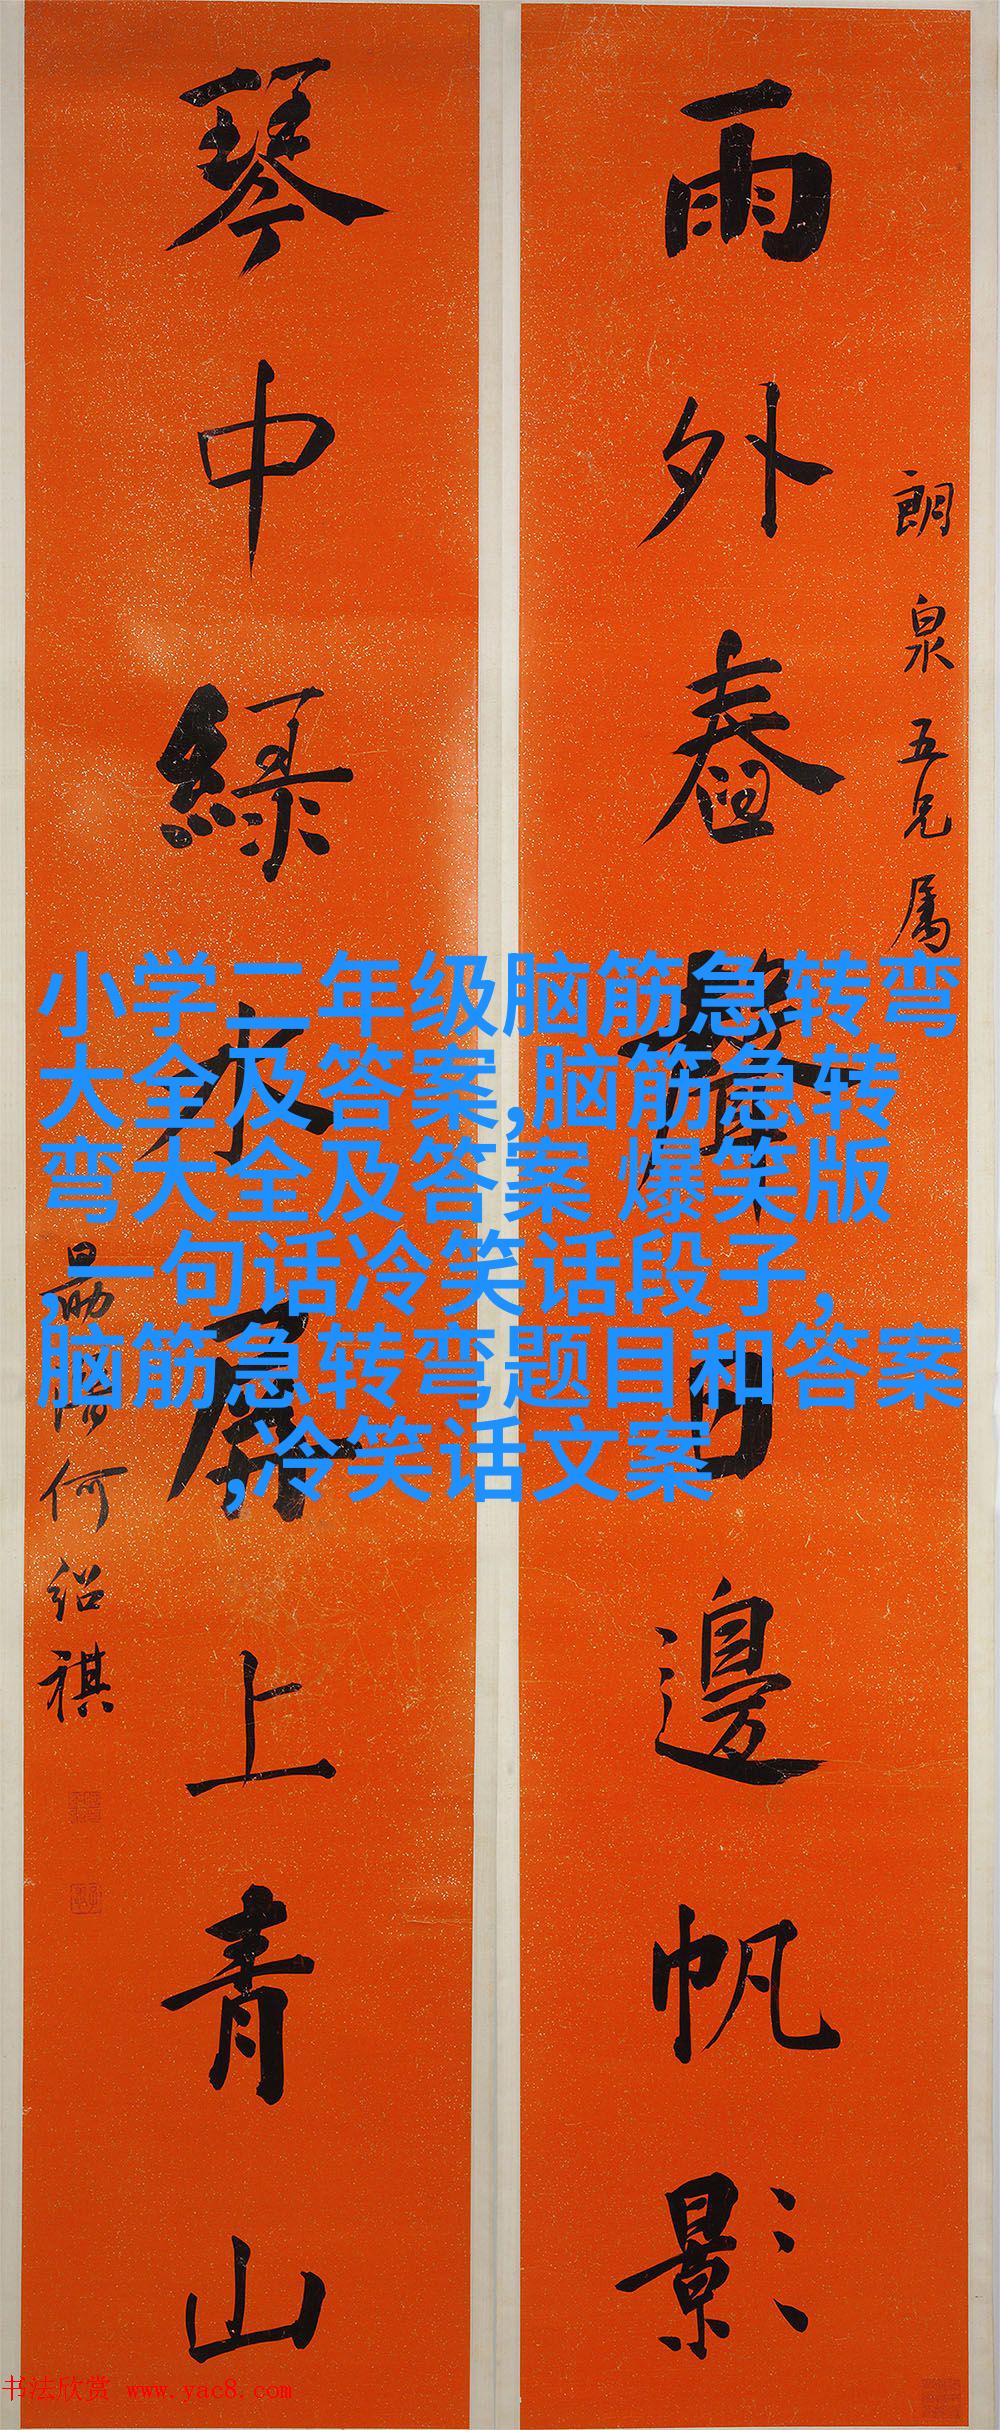 雨外舂聲月邊帆影
朗泉五兄属
琴中綠水屏上青山
勗
何紹祺
小学二年级脑筋急转弯
大全及答案,脑筋急转
弯大全及答案 爆笑版
,一句话冷笑话段子,
脑筋急转弯题目和答案
,冷笑话文案
书法欣赏 www.yac8.com